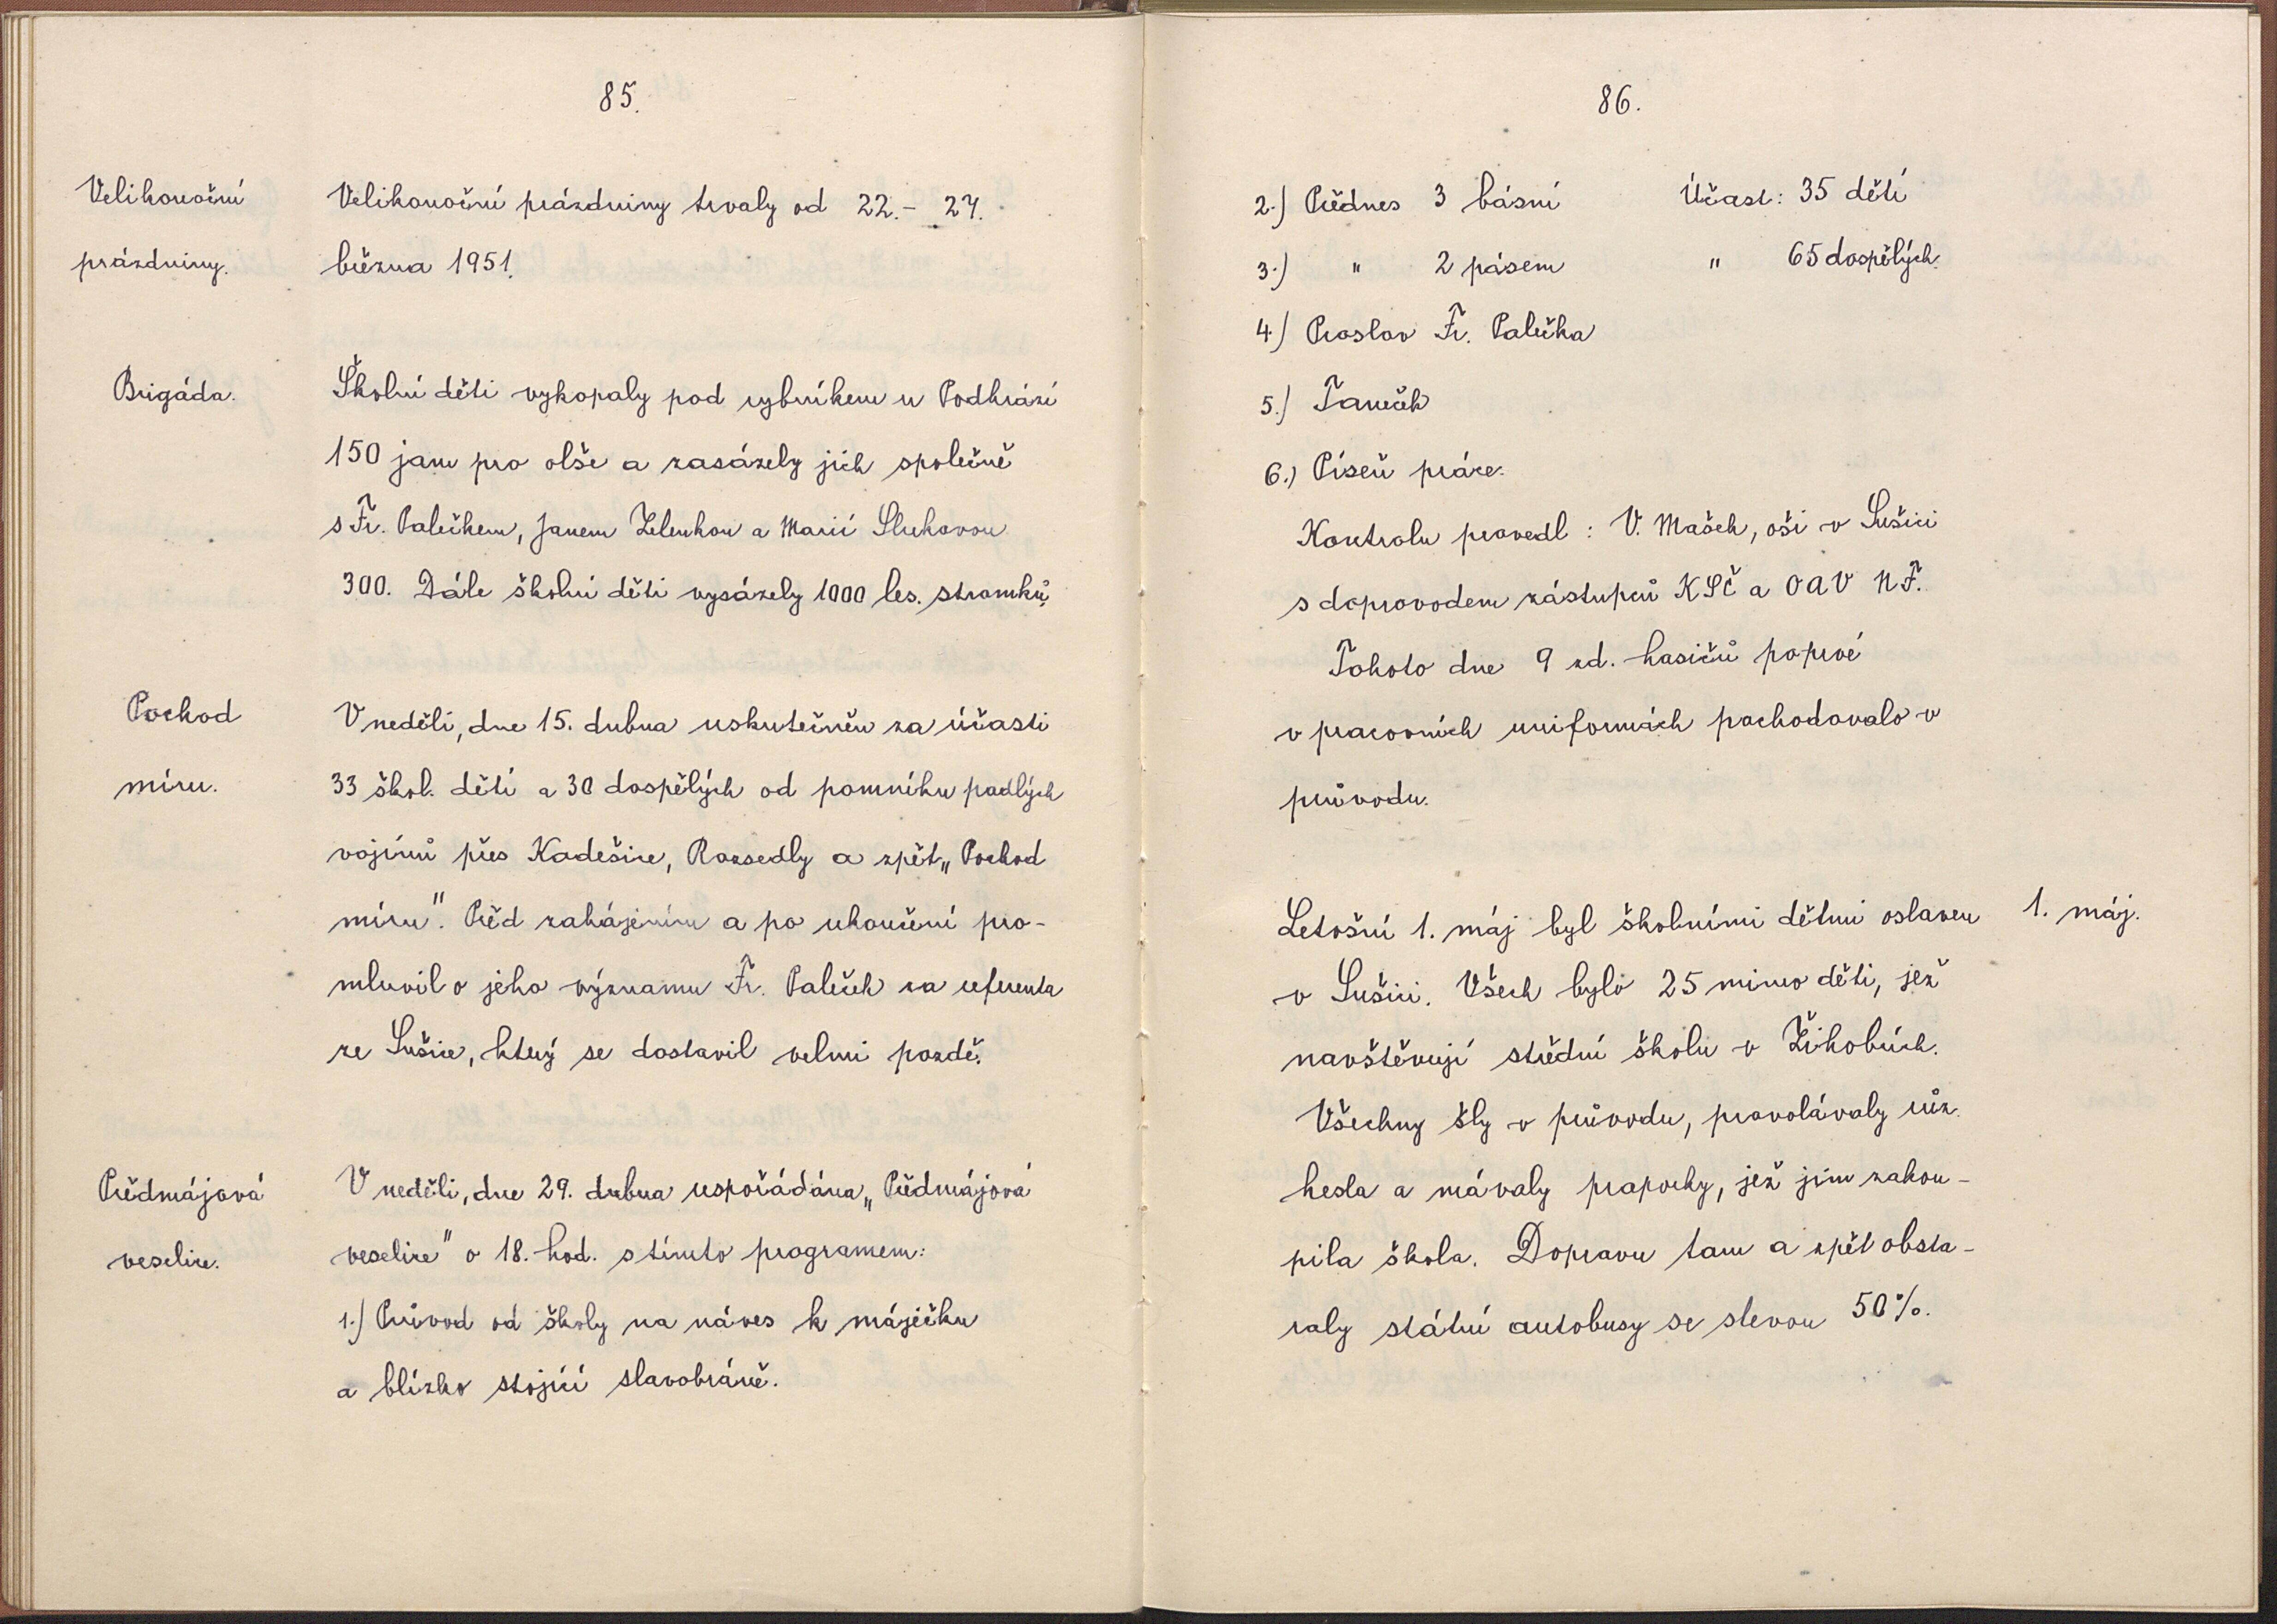 85.
Velikonoční
prázdniny.
Velikonoční prázdniny trvaly od 22.- 27.
března 1951.
Brigáda.
Školní děti vykopaly pod rybníkem u Podhrází
150 jam pro olše a zasázely jich společně
s Fr. Palečkem, Janem Zelenkou a Marií Slukovou
300. Dále školní děti vysázely 1000 les. stromků.
Pochod
míru.
V neděli, dne 15. dubna uskutečněn za účasti
33 škol. dětí a 30 dospělých od pomníku padlých
vojínů přes Kadešice, Rozsedly a zpět „Pochod
míru". Před zahájením a po ukončení pro-
mluvil o jeho významu Fr. Paleček za referenta
ze Sušice, který se dostavil velmi pozdě.
Předmájová
veselice.
V neděli, dne 29. dubna uspořádána „Předmájová
veselice" o 18. hod. s tímto programem:
1.) Průvod od školy na náves k máječku
a blízko stojící slavobráně.
86.
2.) Přednes 3 básní Účast: 35 dětí
3.) " 2 pásem " 65 dospělých.
4.) Proslov Fr. Palečka
5.) Taneček
6.) Píseň práce.
Kontrolu provedl: V. Mašek, oši v Sušici
s doprovodem zástupců KSČ a OAV NF.
Tohoto dne 9 zd. hasičů poprvé
v pracovních uniformách pochodovalo v
průvodu.
Letošní 1. máj byl školními dětmi oslaven
1. máj.
v Sušici. Všech bylo 25 mimo děti, jež
navštěvují střední školu v Žihobcích.
Všechny šly v průvodu, provolávaly růz.
hesla a mávaly praporky, jež jim zakou-
pila škola. Dopravu tam a zpět obsta-
raly státní autobusy se slevou 50%.